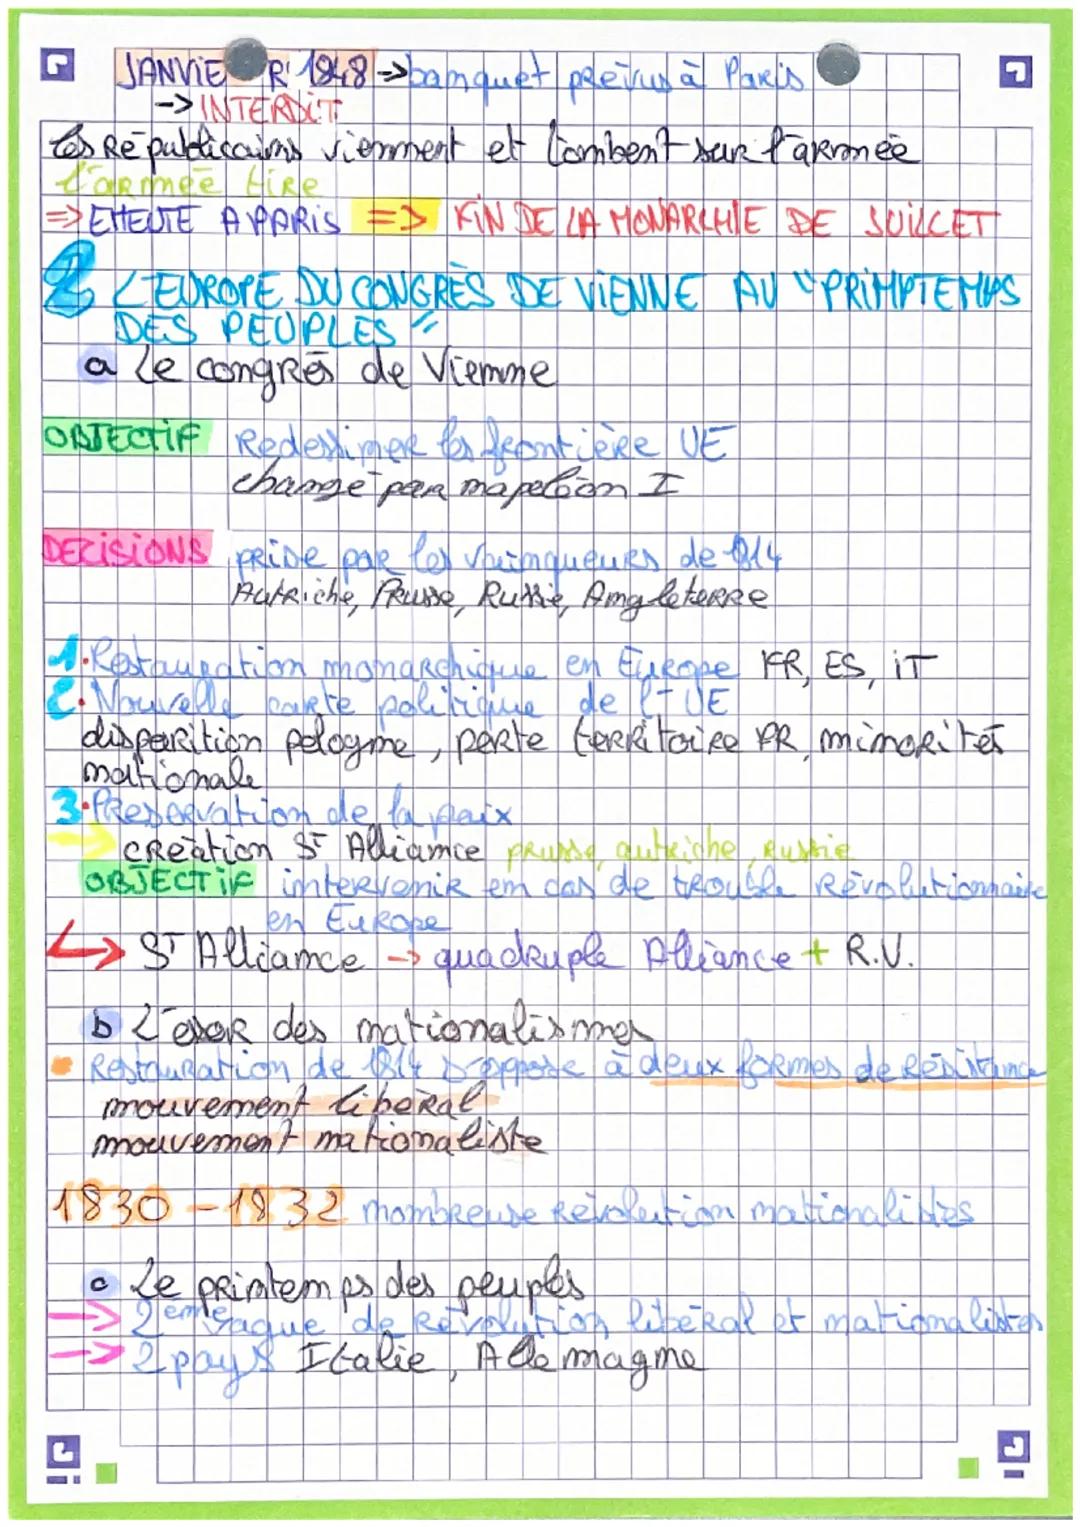 JANVIER 1848 -> banquet prévus à Paris
-> INTERDIT
les Républicains viennent et tombent sur l'armée
l'armée tire
=> EMEUTE A PARIS => FIN DE LA MONARCHIE DE JUILLET
2 L'EUROPE DU CONGRÈS DE VIENNE AU "PRIMPTEMPS
DES PEUPLES"
a Le congrès de Vienne
OBJECTIF Redessiner les frontière UE
changé par napoléon I
DECISIONS prise par les vainqueurs de 1814
Autriche, Prusse, Russie, Angleterre
1. Restauration monarchique en Europe FR, ES, IT
2. Nouvelle carte politique de l'UE
disparition pologne, perte territoire FR, minorités
nationale
3. Préservation de la paix
création St Alliance prusse, autriche, Russie
OBJECTIF intervenir en cas de trouble Révolutionnaire
en Europe
↳ ST Alliance -> quadruple Alliance + R.V.
b L'esor des nationalismes
Restauration de 1814 s'oppose à deux formes de résistance
mouvement libéral
mouvement nationaliste
1830 - 1832 nombreuse révolution nationalistes
c Le printemps des peuples
-> 2eme vague de Révolution libéral et nationalistes
-> 2 pays Italie, Allemagne